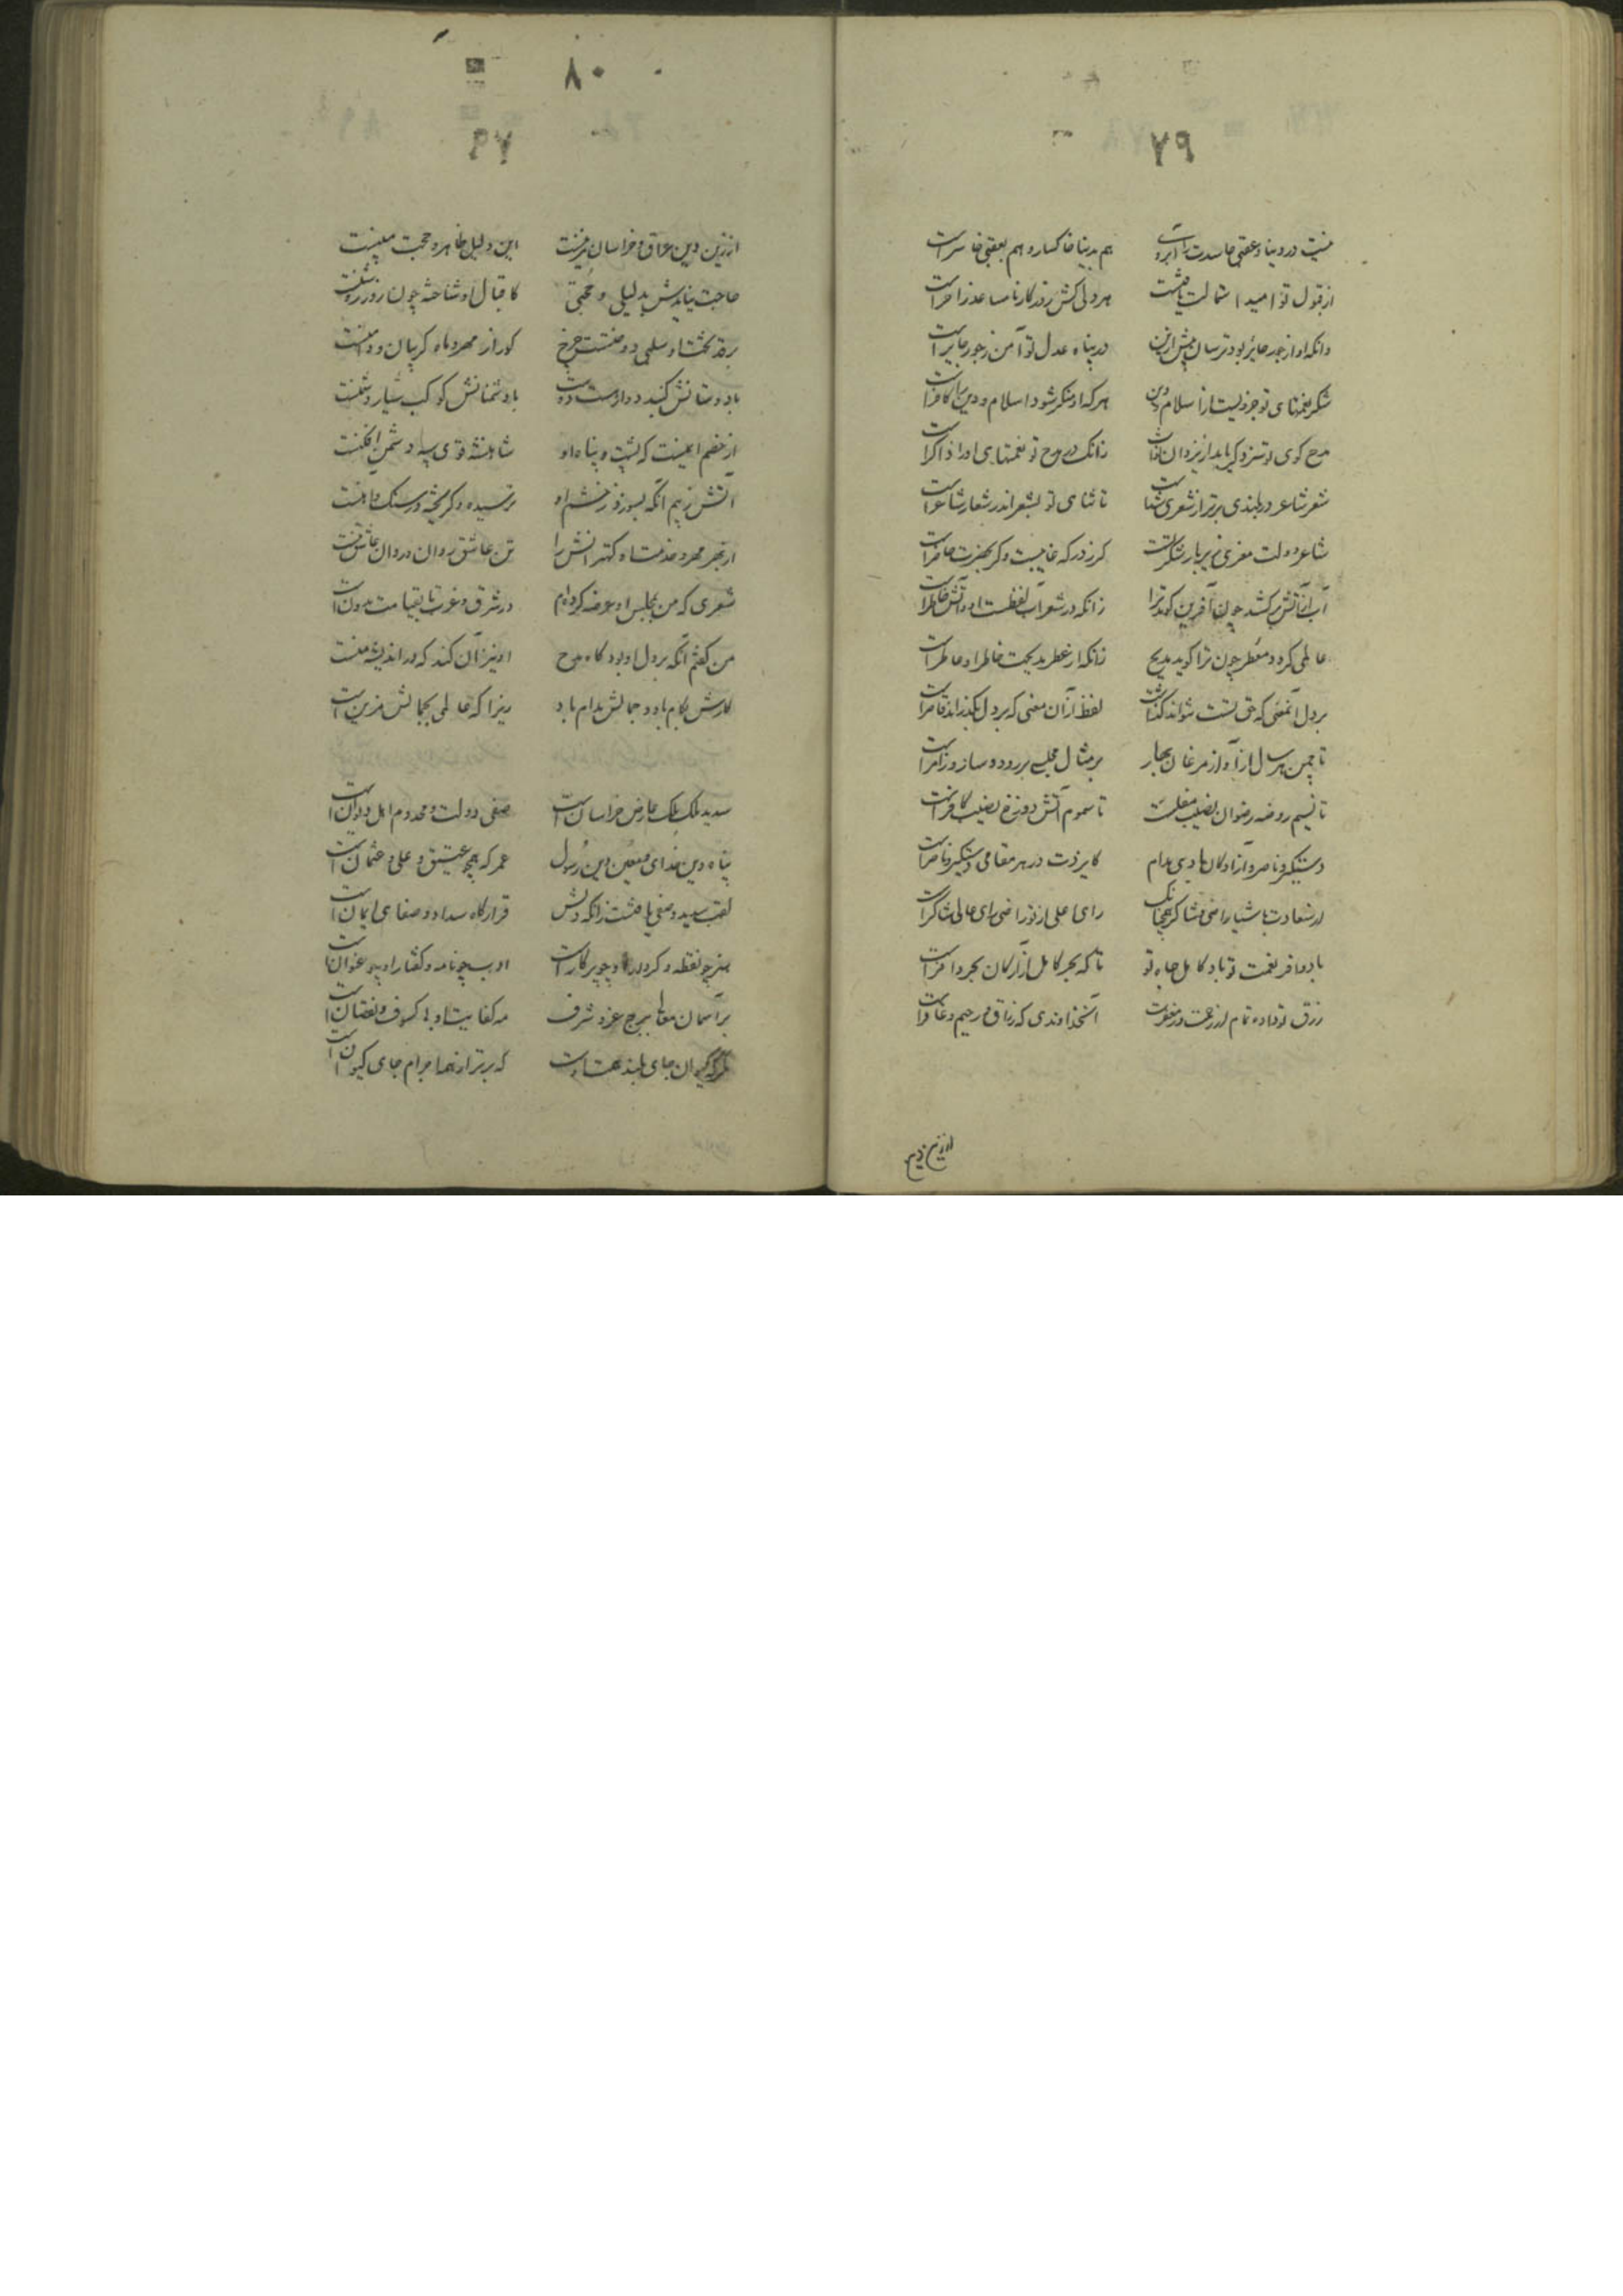 ۷۹
نیست در دنیا و عقبی حاسدت را آبرو هم بدنیا خاکسار و هم بعقبی خاسرست
از قبول تو امید استمالت یافتست هر دلی کش روزگار نامساعد زاجرست
وانکه او از جور جائر بود ترسان پیش ازین در پناه عدل تو آمن ز جور جایرست
شکر نعمتهای تو جزویست از اسلام و دین هر که او منکر شود اسلام و دین را کافرست
مدح گوی تو سزد گر یابد از یزدان ثواب زانک در مدح تو نعمتهای او را ذاکرست
شعر شاعر در بلندی برتر از شعری شدست تا ثنای تو بشعر اندر شعار شاعرست
شاعر دولت معزی زیر بار شکر تست گر ز درگه غایبست و گر بحضرت حاضرست
آب از آتش برکشد چون آفرین گوید ترا زانکه در شعر آب لفظست او و آتش خاطرست
عالمی گردد معطر چون ترا گوید مدیح زانکه از عطر مدیحت خاطر او عاطرست
بر دل آنمعنی که حق تست نتواند گذاشت لفظ از آن معنی که بر دل بگذراند قاصرست
تا چمن هر سال از آواز مرغان بهار بر مثال مجلسی بر رود و ساز و زامرست
تا نسیم روضه رضوان نصیب مفلحست تا سموم آتش دوزخ نصیب کافرست
دستگیر و ناصر آزادگان بادی مدام کایزدت در هر مقامی دستگیر و ناصرست
از سعادت باش یا راضی و شاکر همچنانک رای اعلی از تو راضی رای عالی شاکرست
باد وافر نعمت تو باد کامل جاه تو تا که بحر کامل از ارکان بحر وافرست
رزق تو داده تمام از رحمت و از مغفرت آنخداوندی که رزاق و رحیم و غافرست
از زین دین
۸۰
۹۷
از زین دین عراق و خراسان مزینست این دلیل ظاهر و حجت مبینست
حاجت نیایدش بدلیلی و حجتی کاقبال او شناخته چون روز روشنست
بر قد بخت او سلبی دوختست چرخ کورا ز مهر و ماه گریبان و دامنست
با دوستانش گنبد دوار دوست با دشمنانش کوکب سیار دشمنست
از خصم ایمنست که پشت و پناه او شاهنشه قوی سپه دشمن افکنست
آتش ز بیم آنکه بسوزد ز خشم او ترسیده و گریخته در سنگ و آهنست
از بهر مهر و خدمت او کهترانش را تن عاشق روان و روان عاشق تنست
شعری که من بمجلس او عرضه کرده‌ام در شرق و غرب تا بقیامت مدونست
من گفتم آنکه بر دل او بود گاه مدح او نیز آن کند که در اندیشه منست
کارش بکام باد و جمالش مدام باد زیرا که عالمی بجمالش مزینست
سدید ملک ملک عارض خراسانست صفی دولت و مخدوم اهل دیوانست
پناه دین خدای و معین دین رسول عمر که همچو عتیق و علی و عثمانست
لقب سدید و صفی یافتست زانکه دلش قرارگاه سداد و صفای ایمانست
هنر چو نقطه و کردار او چو پرگارست ادب چو نامه و گفتار او چو عنوانست
بر آسمان معالی ببرج عز و شرف مه کفایت او بی کسوف و نقصانست
مگر که کیوان جای بلند همت اوست که برتر از همه اجرام جای کیوانست